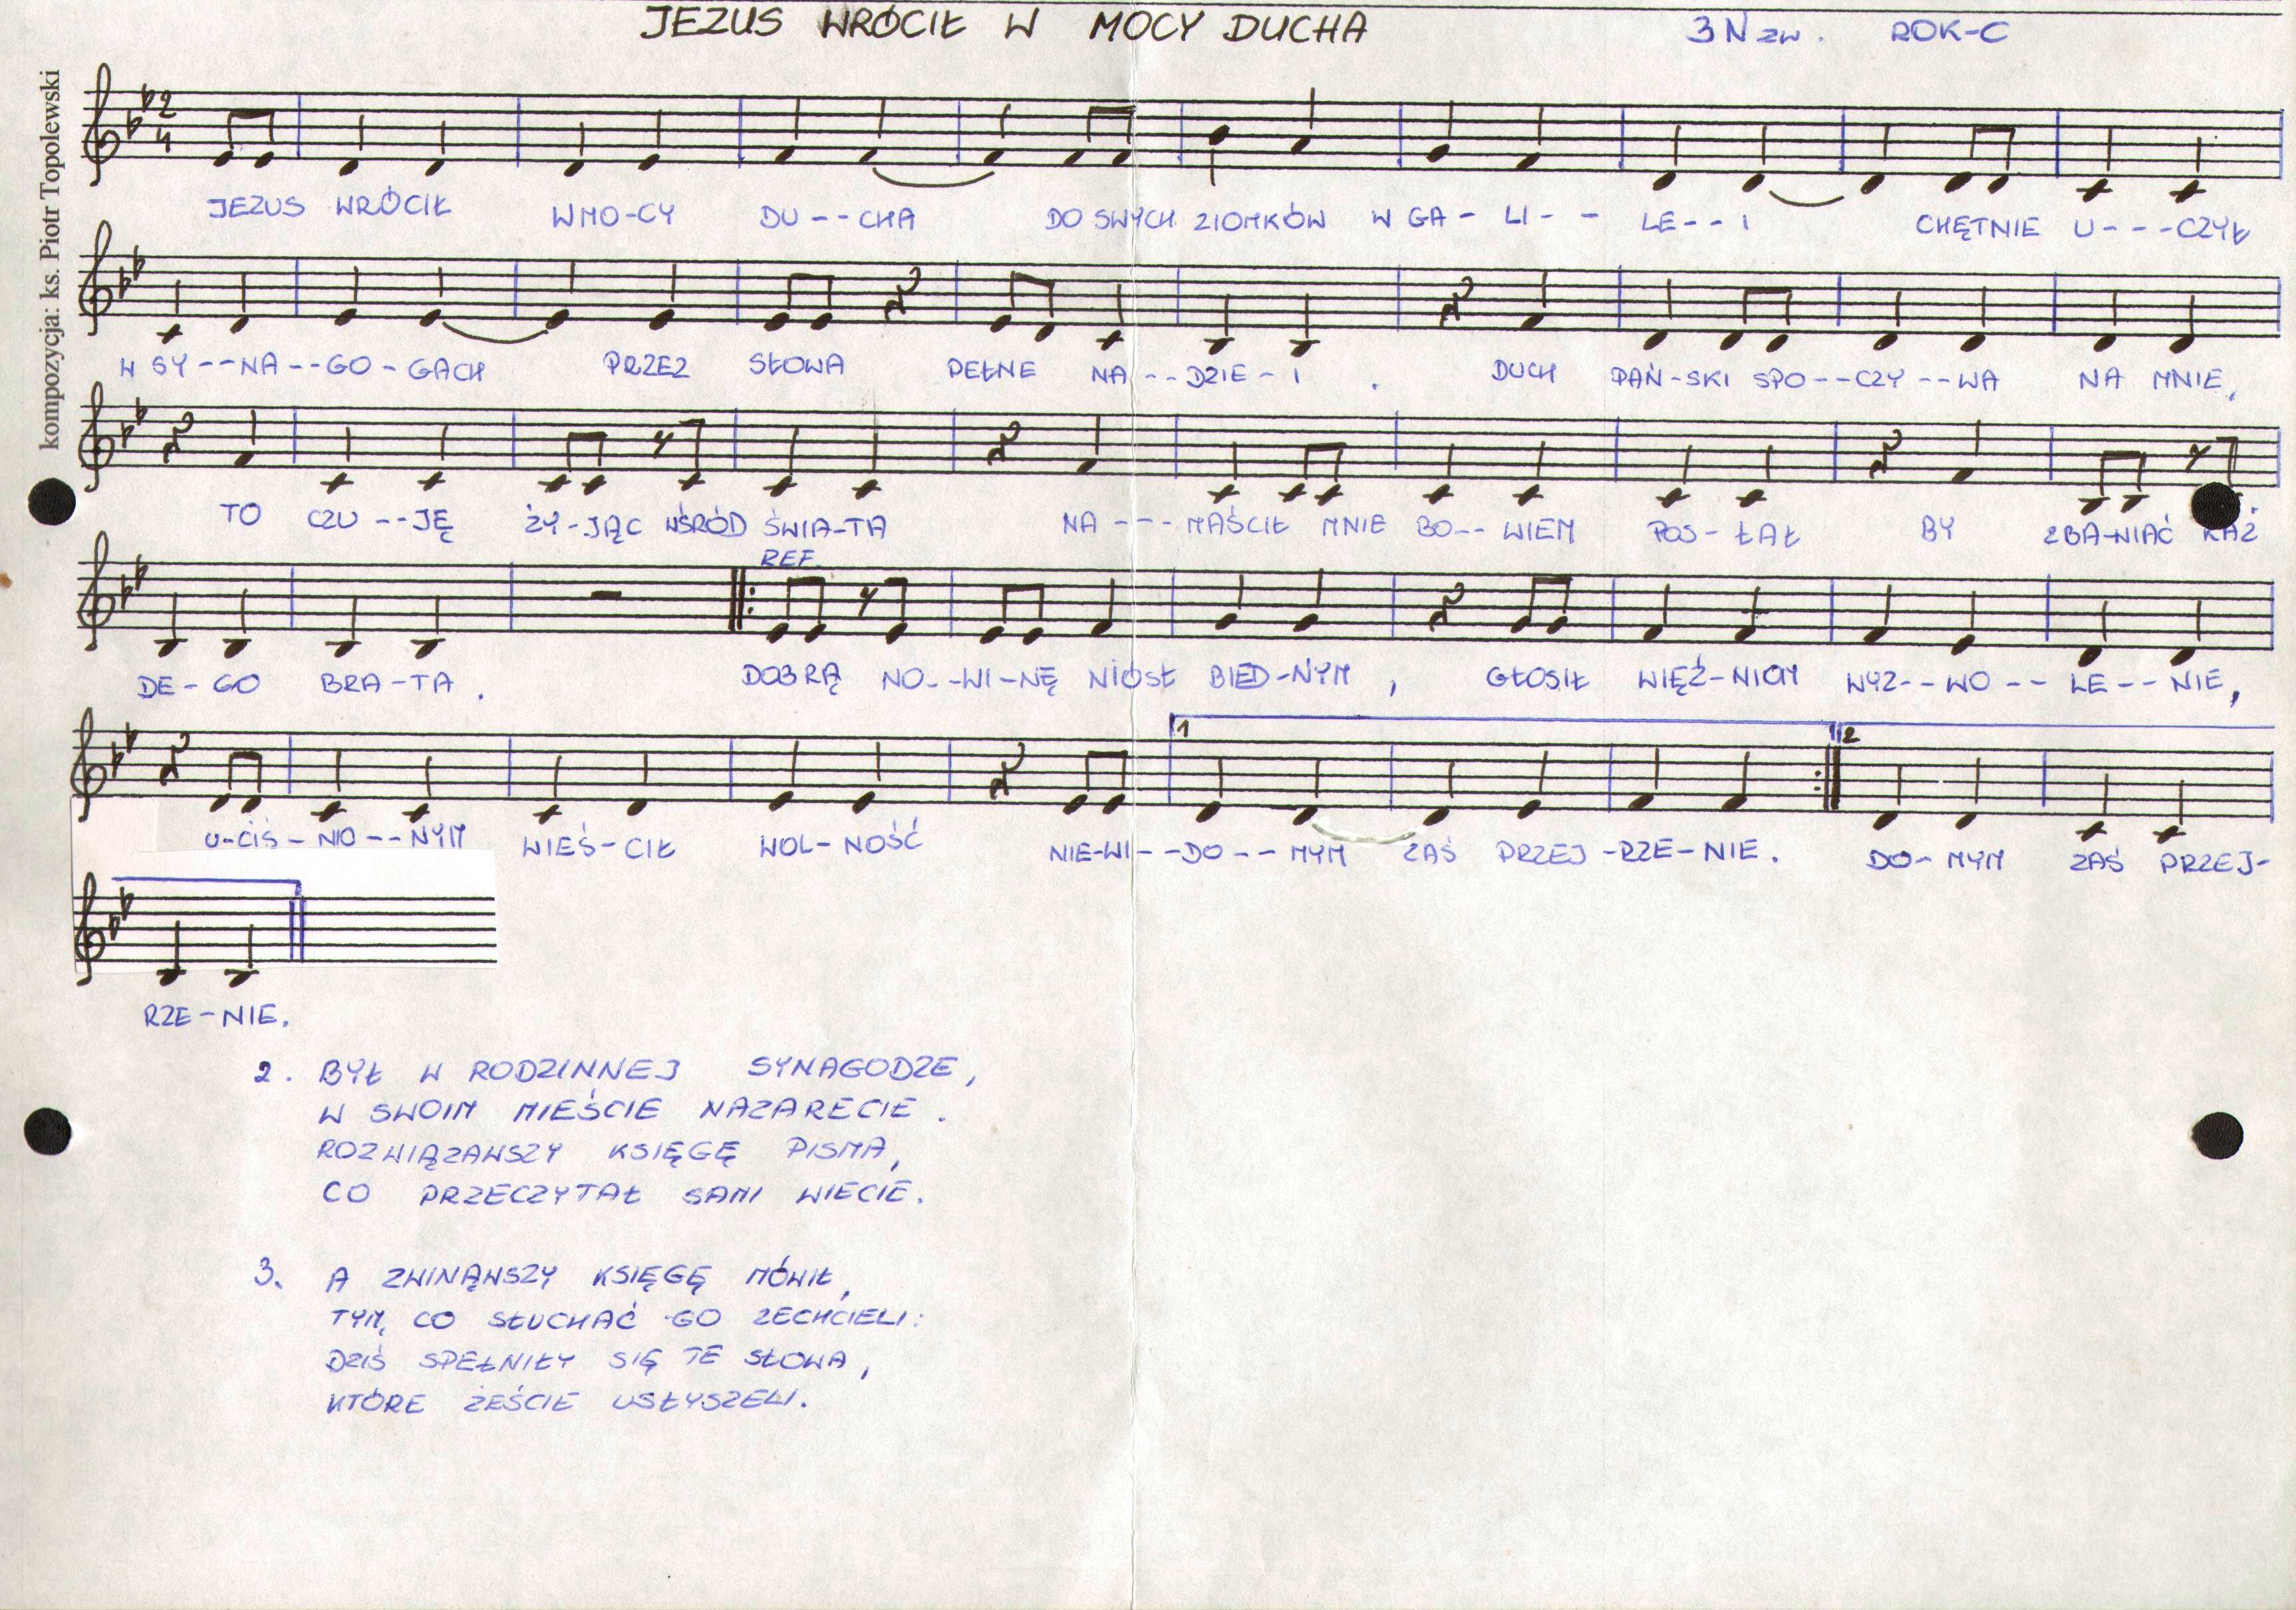 JEZUS WRÓCIŁ W MOCY DUCHA
3 N zw. ROK-C
kompozycja: ks. Piotr Topolewski
2
4
JEZUS WRÓCIŁ W MO-CY DU--CHA DO SWYCH ZIOMKÓW W GA-LI--LE--I CHĘTNIE U---CZYŁ
W SY--NA--GO-GACH PRZEZ SŁOWA PEŁNE NA--DZIE-I. DUCH PAŃ-SKI SPO--CZY--WA NA MNIE,
TO CZU--JĘ ŻY-JĄC WŚRÓD ŚWIA-TA NA---MAŚCIŁ MNIE BO--WIEM POS-ŁAŁ BY ZBA-WIAĆ KAŻ
REF.
DE-GO BRA-TA. DOBRĄ NO--WI-NĘ NIÓSŁ BIED-NYM, GŁOSIŁ WIĘŹ-NIOM WYZ--WO--LE--NIE,
1 2
U-CIŚ-NIO--NYM WIEŚ-CIŁ WOL-NOŚĆ NIE-WI--DO--MYM ZAŚ PRZEJ-RZE-NIE. DO-MYM ZAŚ PRZEJ-
RZE-NIE.
2. BYŁ W RODZINNEJ SYNAGODZE,
W SWOIM MIEŚCIE NAZARECIE.
ROZWIĄZAWSZY KSIĘGĘ PISMA,
CO PRZECZYTAŁ SAMI WIECIE.
3. A ZWINĄWSZY KSIĘGĘ MÓWIŁ,
TYM, CO SŁUCHAĆ GO ZECHCIELI:
DZIŚ SPEŁNIŁY SIĘ TE SŁOWA,
KTÓRE ŻEŚCIE USŁYSZELI.